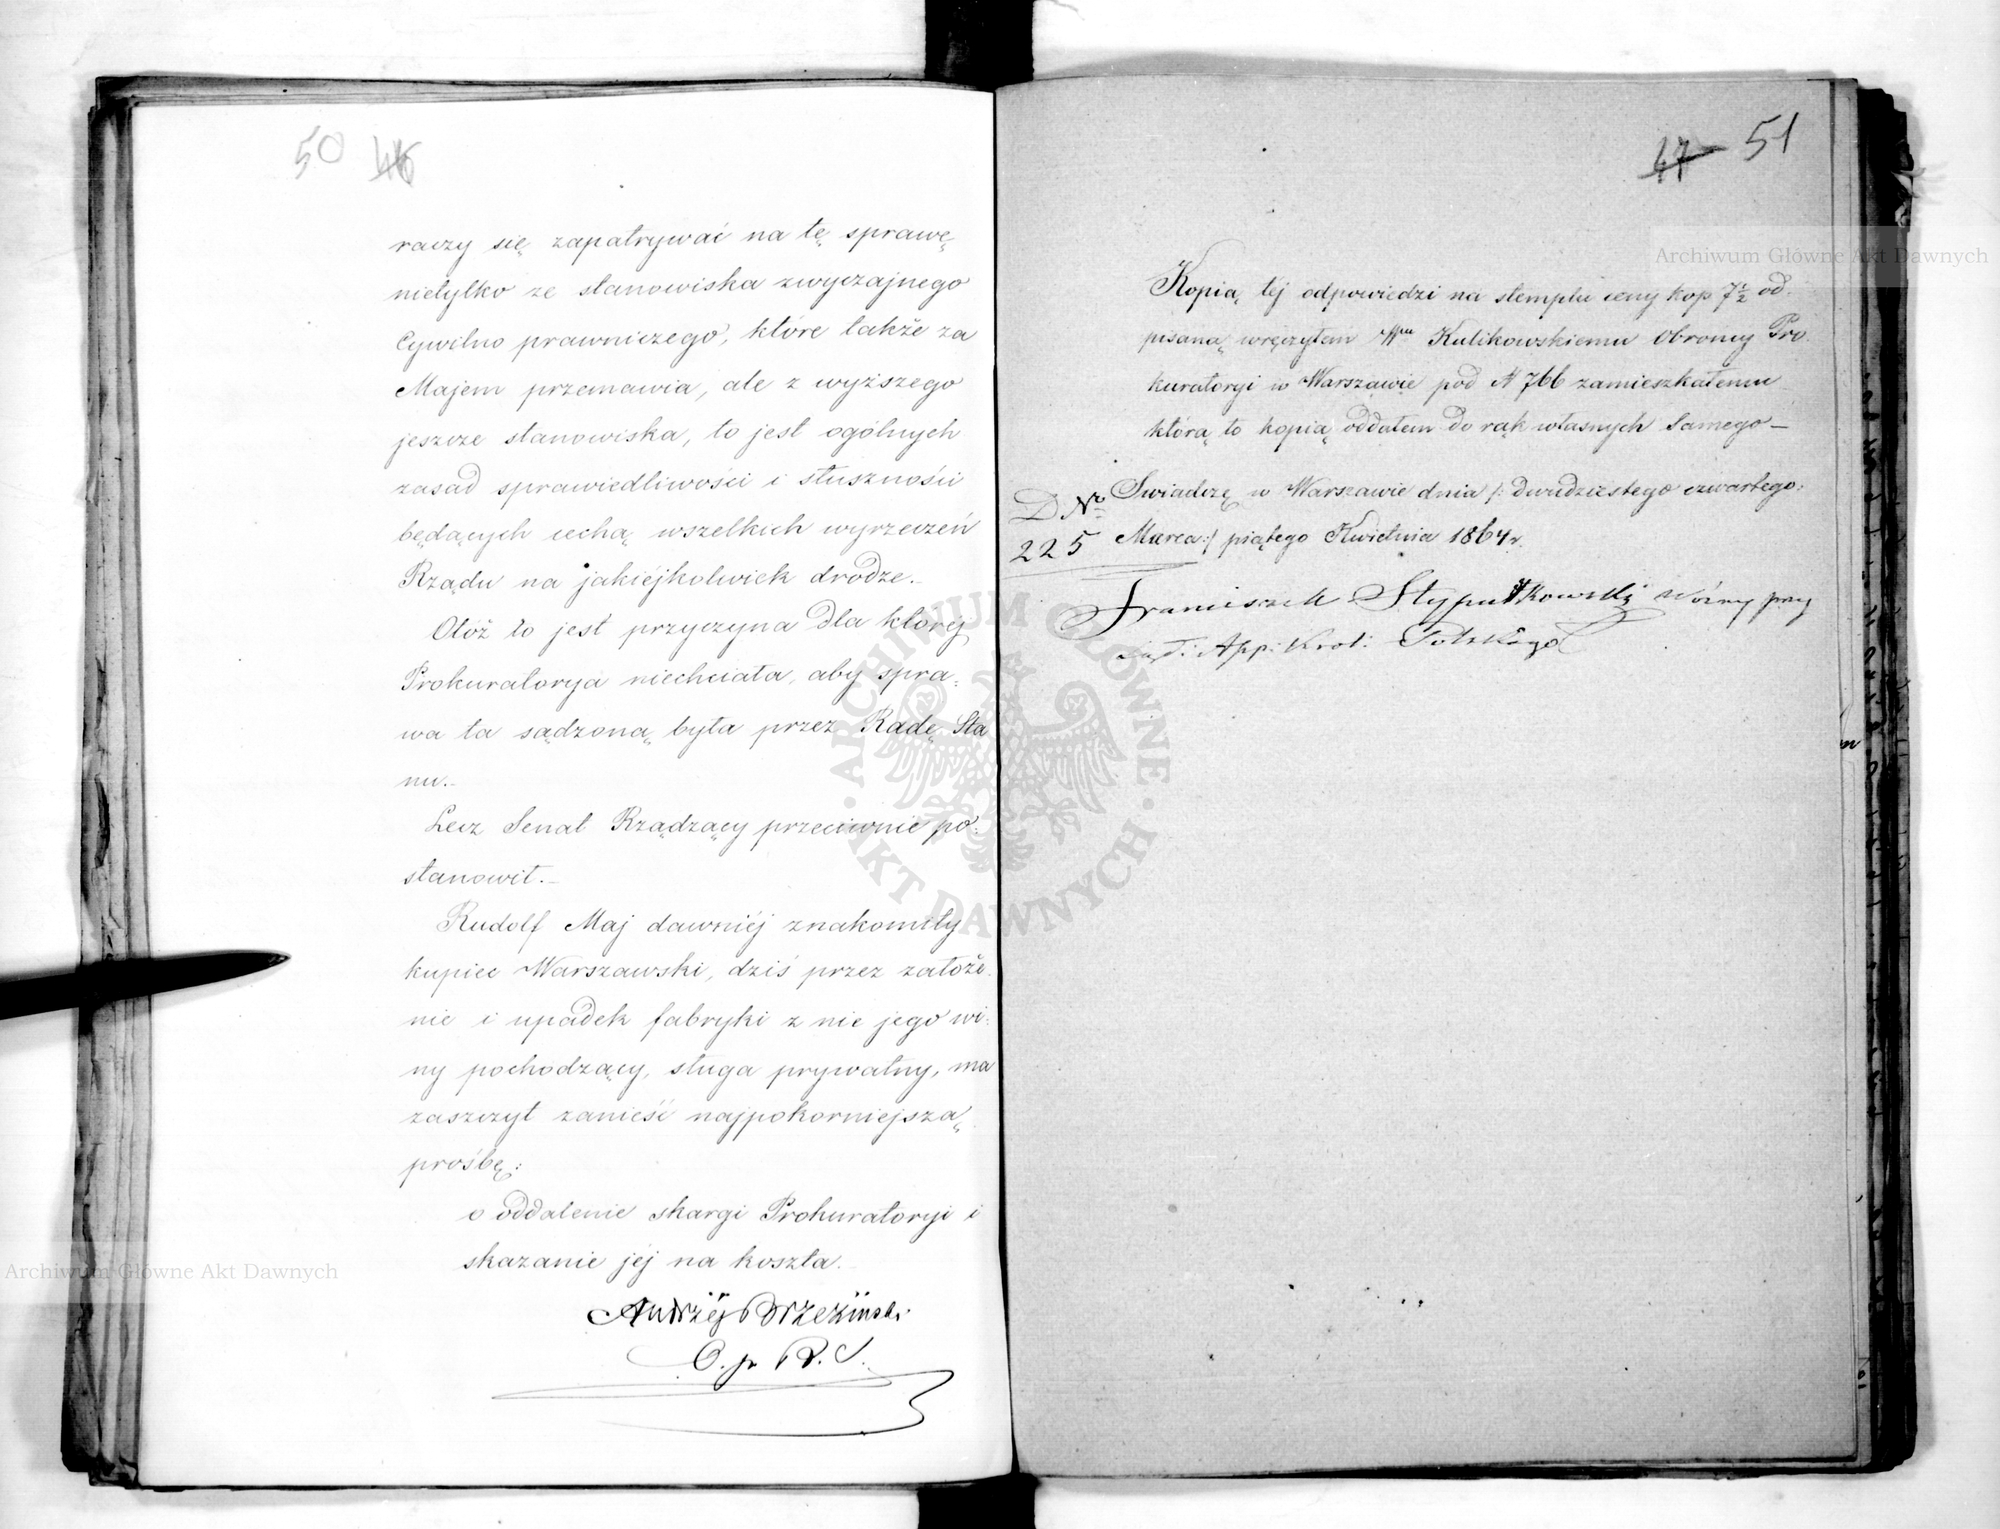 50 46
raczy się zapatrywać na tę sprawę
nietylko ze stanowiska zwyczajnego
Cywilno prawniczego, które także za
Majem przemawia, ale z wyższego
jeszcze stanowiska, to jest ogólnych
zasad sprawiedliwości i słuszności
będących cechą wszelkich wyrzeczeń
Rządu na jakiéjkolwiek drodze.
Otóż to jest przyczyna dla któréj
Prokuratorya niechciała, aby spra-
wa ta sądzoną była przez Radę Sta
nu.
Lecz Senat Rządzący przeciwnie po-
stanowił.
Rudolf Maj dawniéj znakomity
kupiec Warszawski, dziś przez założe-
nie i upadek fabryki z nie jego wi-
ny pochodzący, sługa prywatny, ma
zaszczyt zanieść najpokorniejszą
prośbę:
o oddalenie skargi Prokuratoryi i
skazanie jéj na koszta.
Andrzéj Brzeziński
O. p. R. S.
47 51
Kopią téj odpowiedzi na stemplu ceny kop 7½ od-
pisaną wręczyłem Wmu Kulikowskiemu Obrońcy Pro-
kuratoryi w Warszawie pod N 766 zamieszkałemu
którą to kopią oddałem do rąk własnych Samego
Swiadczę w Warszawie dnia /: dwudziestego czwartego
Marca :/ piątego Kwietnia 1864 r.
D Nr
225
Franciszek Stypułkowski Woźny przy
Sąd: App: Król: Polskiego
Archiwum Główne Akt Dawnych
Archiwum Główne Akt Dawnych
ARCHIWUM GŁÓWNE
AKT DAWNYCH